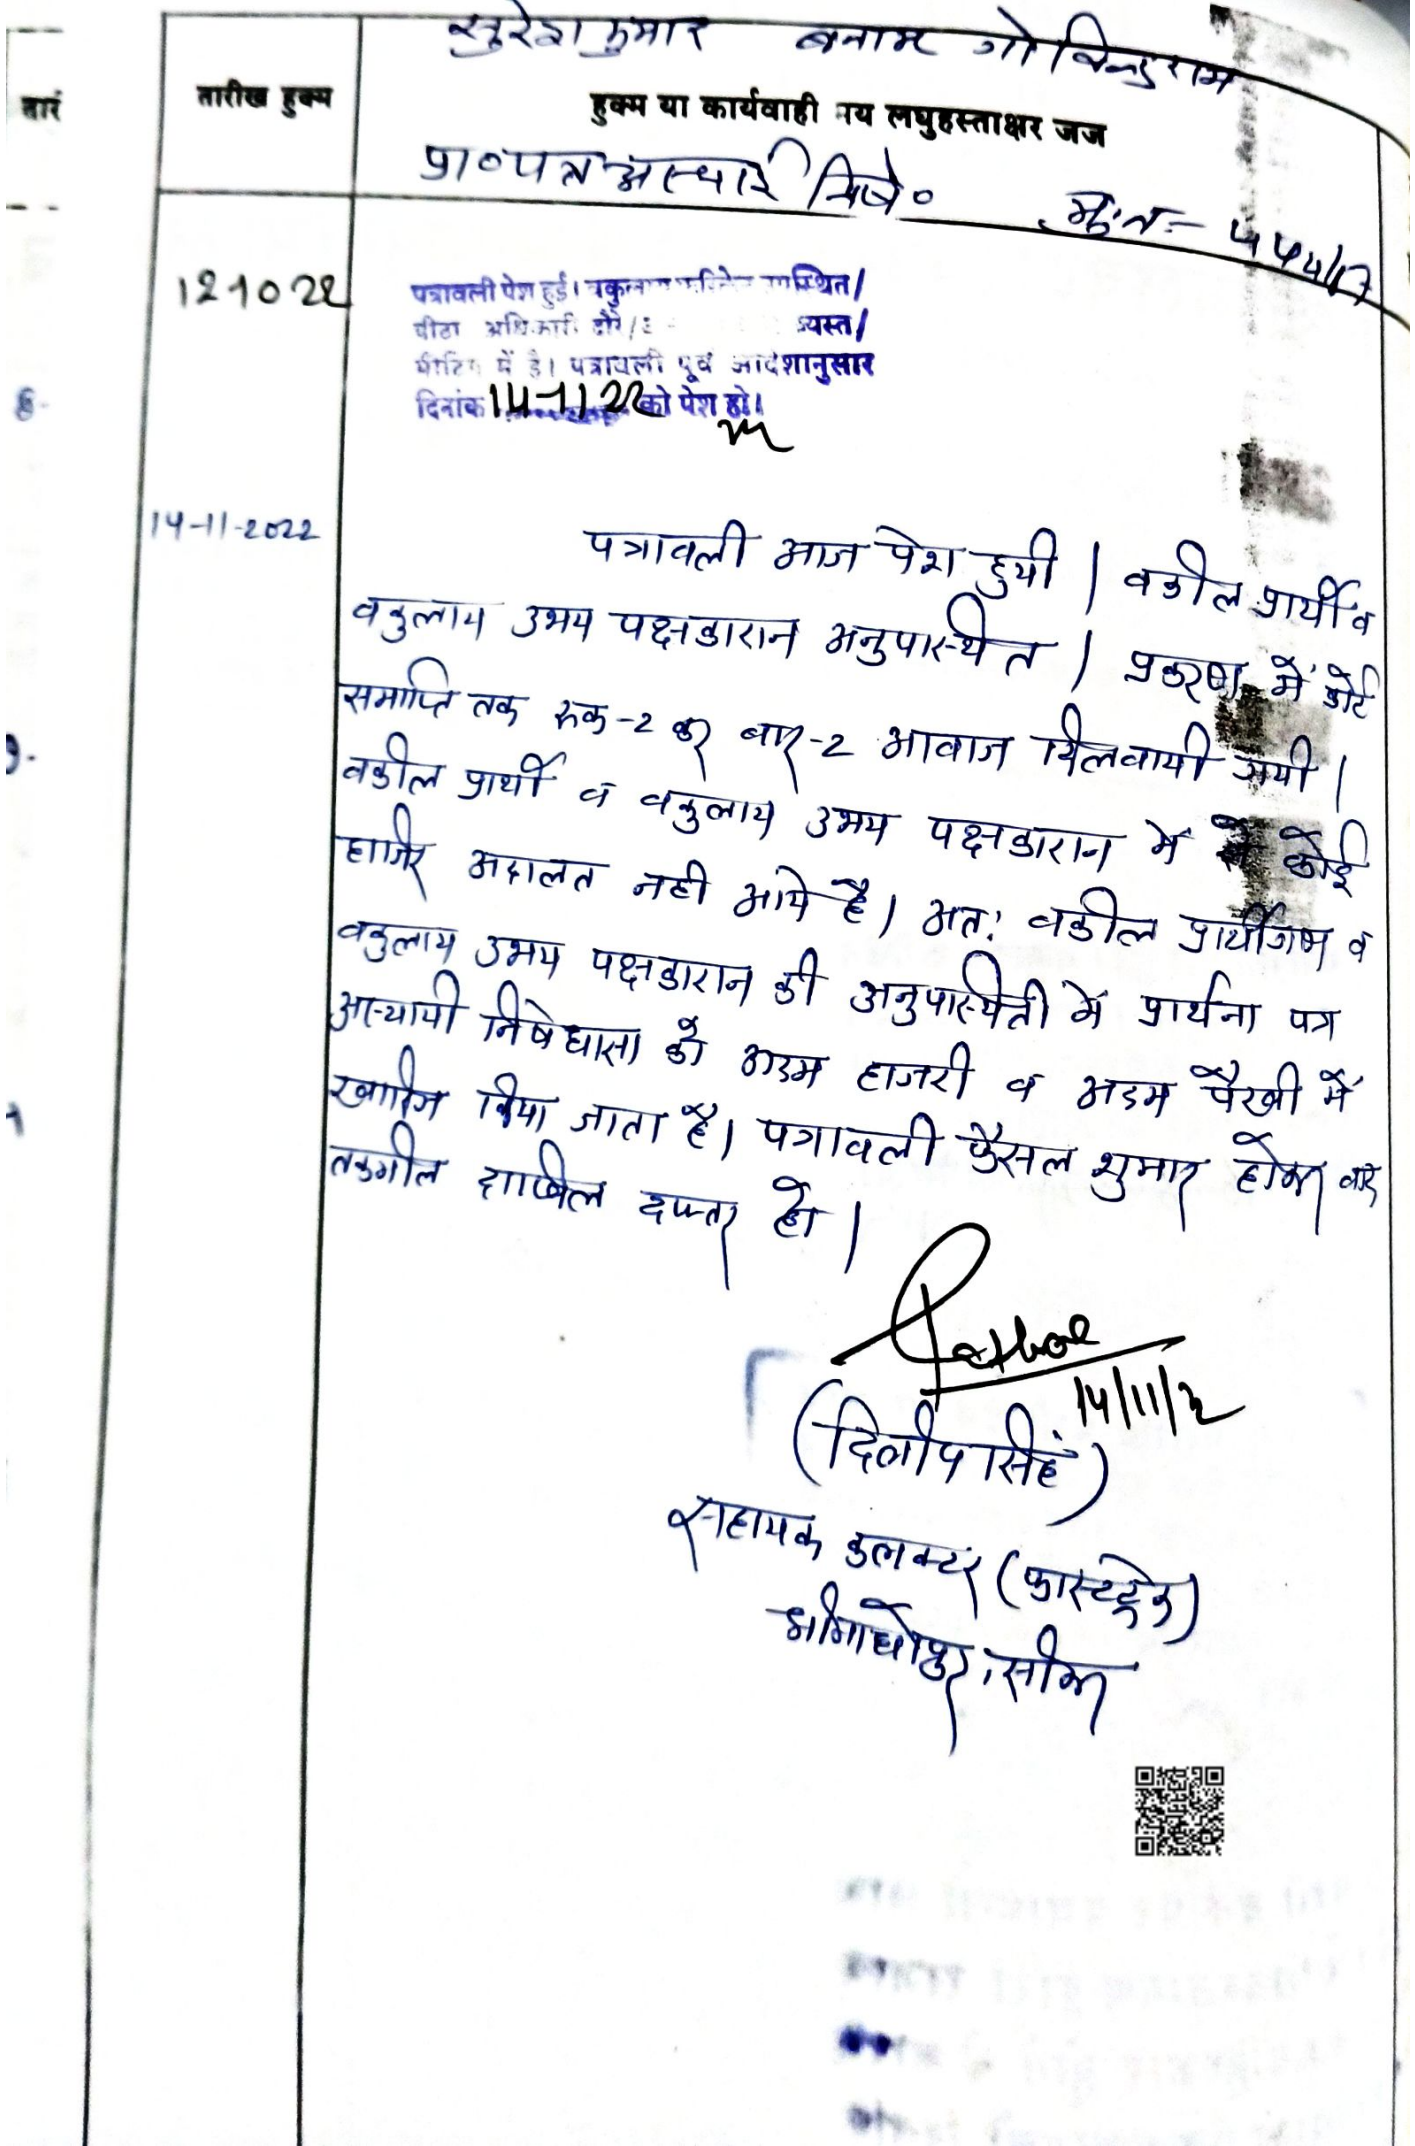 सुरेश कुमार बनाम गोविन्दराम
तारीख हुक्म
हुक्म या कार्यवाही मय लघुहस्ताक्षर जज
तारी
प्रा०पत्र अस्थाई निषे०
मु.न.=
12 10 22
पत्रावली पेश हुई। उपस्थित/
पीठा अधिकारी दौरे/ व्यस्त/
मीटिंग में है। पत्रावली पूर्व आदेशानुसार
दिनांक 14-11 22 को पेश हो।
14-11-2022
पत्रावली आज पेश हुयी। वकील प्रार्थी व
वकुलाय उभय पक्षकारान अनुपास्थित। प्रकरण में कोर्ट
समाप्ति तक रुक-2 कर बार-2 आवाज दिलवायी गयी।
वकील प्रार्थी व वकुलाय उभय पक्षकारान में से कोई
हाजिर अदालत नही आये है। अत: वकील प्रार्थीगण व
वकुलाय उभय पक्षकारान की अनुपास्थिती में प्रार्थना पत्र
अस्थायी निषेधाज्ञा को अदम हाजरी व अदम पैरवी में
खारिज किया जाता है। पत्रावली फैसल शुमार होकर बाद
तकमील दाखिल दफ्तर हो।
14/11/22
(दिलीप सिंह)
सहायक कलक्टर (फास्टट्रेक)
श्रीमाधोपुर, सीकर